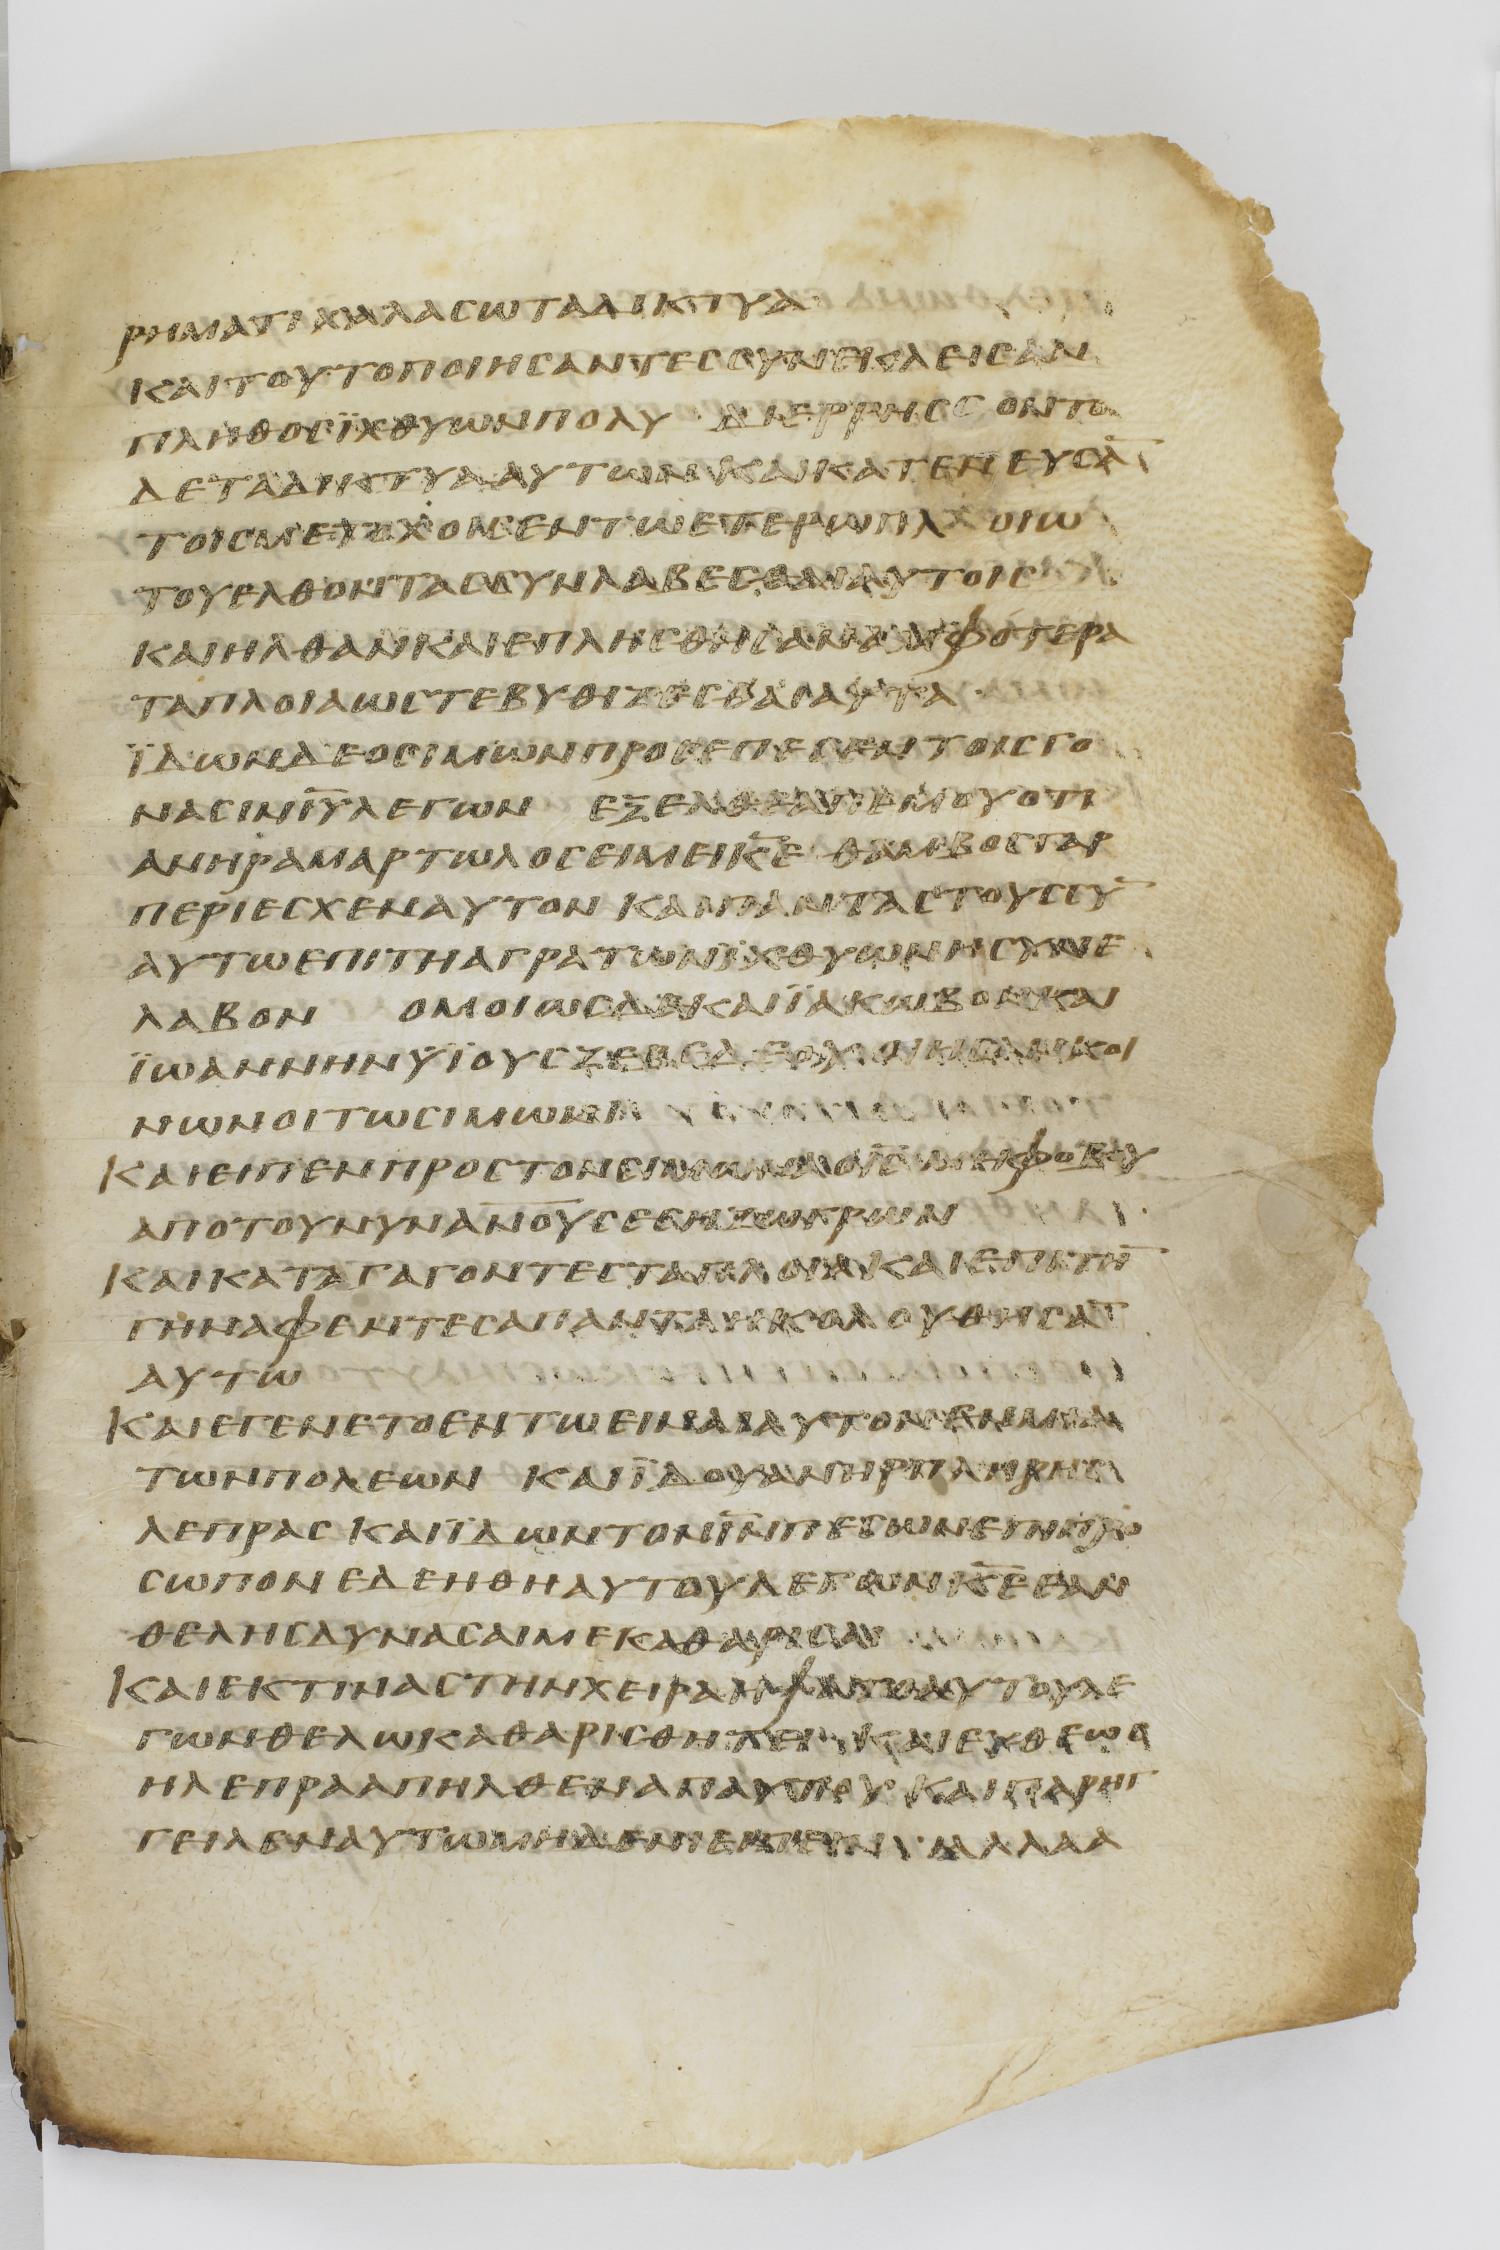 ΡΗΜΑΤΙ ΧΑΛΑϹΩ ΤΑ ΔΙΚΤΥΑ
ΚΑΙ ΤΟΥΤΟ ΠΟΙΗϹΑΝΤΕϹ ϹΥΝΕΚΛΕΙϹΑΝ
ΠΛΗΘΟϹ ΪΧΘΥΩΝ ΠΟΛΥ ΔΙΕΡΡΗϹϹΟΝΤΟ
ΔΕ ΤΑ ΔΙΚΤΥΑ ΑΥΤΩΝ ΚΑΙ ΚΑΤΕΝΕΥϹΑ̅
ΤΟΙϹ ΜΕΤΟΧΟΙϹ ΕΝ ΤΩ ΕΤΕΡΩ ΠΛΟΙΩ
ΤΟΥ ΕΛΘΟΝΤΑϹ ϹΥΝΛΑΒΕϹΘΑΙ ΑΥΤΟΙϹ
ΚΑΙ ΗΛΘΑΝ ΚΑΙ ΕΠΛΗϹΘΗϹΑΝ ΑΜΦΟΤΕΡΑ
ΤΑ ΠΛΟΙΑ ΩϹΤΕ ΒΥΘΙΖΕϹΘΑΙ ΑΥΤΑ
ΪΔΩΝ ΔΕ Ο ϹΙΜΩΝ ΠΡΟϹΕΠΕϹΕΝ ΤΟΙϹ ΓΟ
ΝΑϹΙΝ Ι̅Υ̅ ΛΕΓΩΝ ΕΞΕΛΘΕ ΑΠ ΕΜΟΥ ΟΤΙ
ΑΝΗΡ ΑΜΑΡΤΩΛΟϹ ΕΙΜΕΙ Κ̅Ε̅ ΘΑΜΒΟϹ ΓΑΡ
ΠΕΡΙΕϹΧΕΝ ΑΥΤΟΝ ΚΑΙ ΠΑΝΤΑϹ ΤΟΥϹ ϹΥ̅
ΑΥΤΩ ΕΠΙ ΤΗ ΑΓΡΑ ΤΩΝ ΪΧΘΥΩΝ Η ϹΥΝΕ
ΛΑΒΟΝ ΟΜΟΙΩϹ ΔΕ ΚΑΙ ΪΑΚΩΒΟΝ ΚΑΙ
ΪΩΑΝΝΗΝ ΫΙΟΥϹ ΖΕΒΕΔΕΟΥ ΟΙ ΗϹΑΝ ΚΟΙ
ΝΩΝΟΙ ΤΩ ϹΙΜΩΝΙ
ΚΑΙ ΕΙΠΕΝ ΠΡΟϹ ΤΟΝ ϹΙΜΩΝΑ Ο Ι̅Ϲ̅ ΜΗ ΦΟΒΟΥ
ΑΠΟ ΤΟΥ ΝΥΝ Α̅Ν̅Ο̅Υ̅Ϲ̅ ΕϹΗ ΖΩΓΡΩΝ
ΚΑΙ ΚΑΤΑΓΑΓΟΝΤΕϹ ΤΑ ΠΛΟΙΑ ΚΑΙ ΕΠΙ ΤΗ̅
ΓΗΝ ΑΦΕΝΤΕϹ ΑΠΑΝΤΑ ΗΚΟΛΟΥΘΗϹΑ̅
ΑΥΤΩ
ΚΑΙ ΕΓΕΝΕΤΟ ΕΝ ΤΩ ΕΙΝΑΙ ΑΥΤΟΝ ΕΝ ΜΙΑ
ΤΩΝ ΠΟΛΕΩΝ ΚΑΙ ΪΔΟΥ ΑΝΗΡ ΠΛΗΡΗϹ
ΛΕΠΡΑϹ ΚΑΙ ΪΔΩΝ ΤΟΝ Ι̅Ν̅ ΠΕϹΩΝ ΕΠΙ ΠΡΟ
ϹΩΠΟΝ ΕΔΕΗΘΗ ΑΥΤΟΥ ΛΕΓΩΝ Κ̅Ε̅ ΕΑΝ
ΘΕΛΗϹ ΔΥΝΑϹΑΙ ΜΕ ΚΑΘΑΡΙϹΑΙ
ΚΑΙ ΕΚΤΙΝΑϹ ΤΗΝ ΧΕΙΡΑ ΗΨΑΤΟ ΑΥΤΟΥ ΛΕ
ΓΩΝ ΘΕΛΩ ΚΑΘΑΡΙϹΘΗΤΙ ΚΑΙ ΕΥΘΕΩϹ
Η ΛΕΠΡΑ ΑΠΗΛΘΕΝ ΑΠ ΑΥΤΟΥ ΚΑΙ ΠΑΡΗΓ
ΓΕΙΛΕΝ ΑΥΤΩ ΜΗΔΕΝΙ ΕΙΠΕΙΝ ΑΛΛΑ